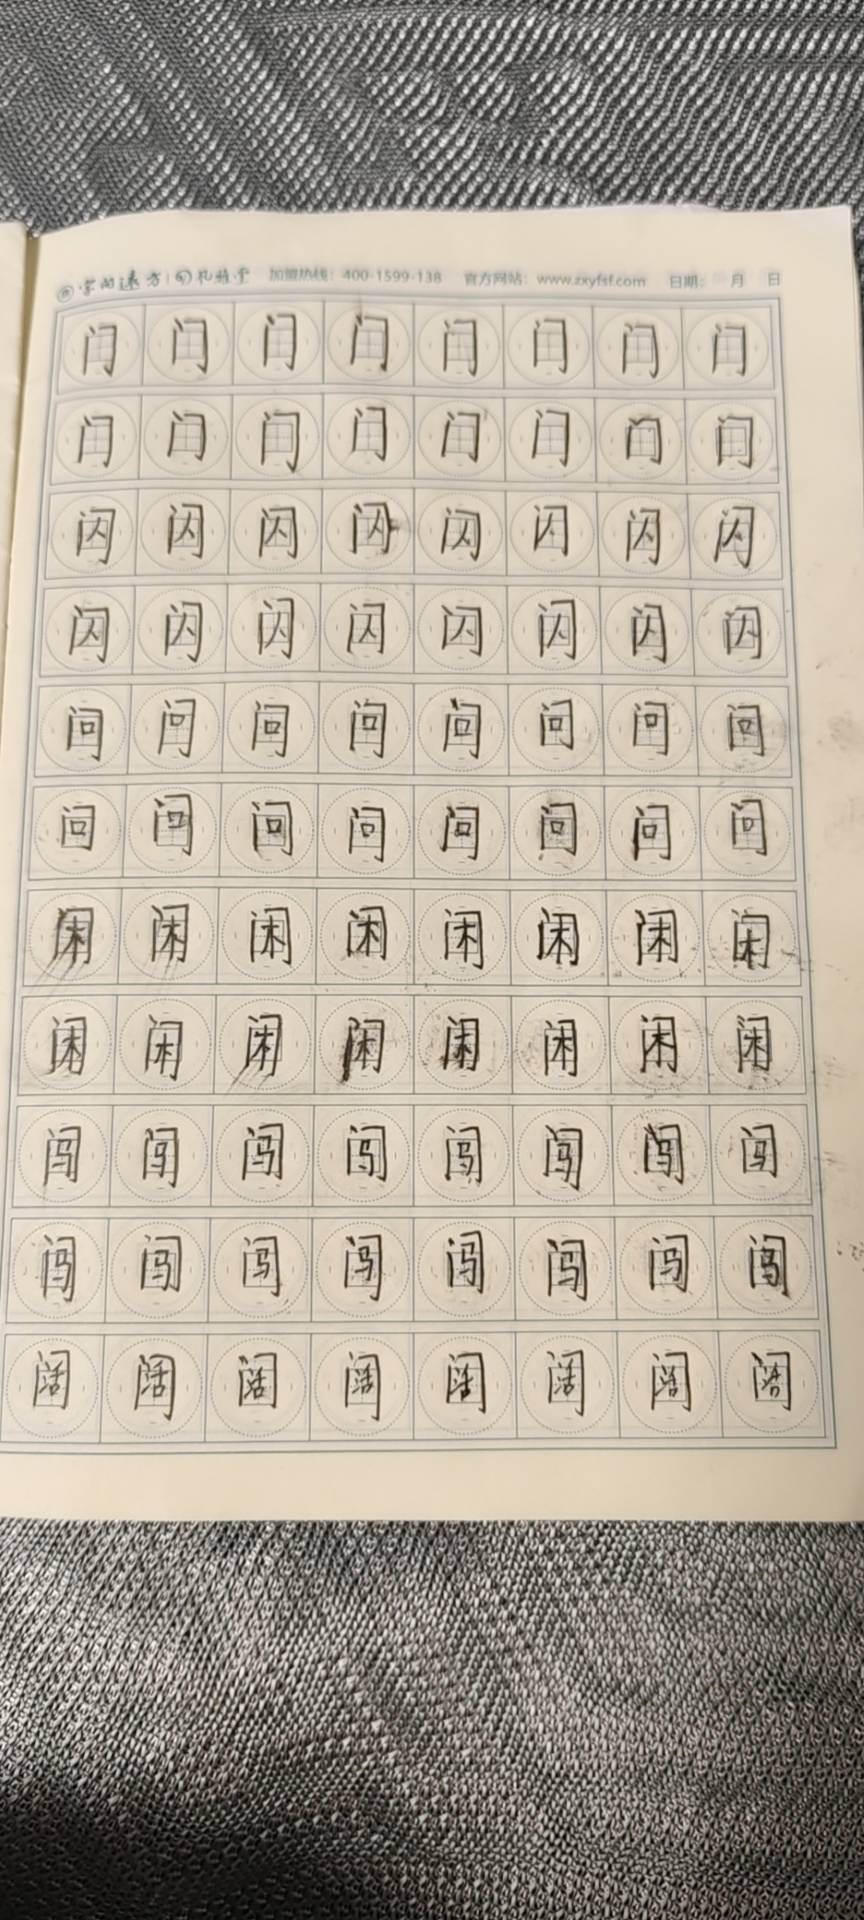 字的远方 孔雅堂 加盟热线：400-1599-138 官方网站：www.zxyfsf.com 日期： 月 日
门 门 门 门 门 门 门 门
门 门 门 门 门 门 门 门
闪 闪 闪 闪 闪 闪 闪 闪
闪 闪 闪 闪 闪 闪 闪 闪
问 问 问 问 问 问 问 问
问 问 问 问 问 问 问 问
闲 闲 闲 闲 闲 闲 闲 闲
闲 闲 闲 闲 闲 闲 闲 闲
闯 闯 闯 闯 闯 闯 闯 闯
闯 闯 闯 闯 闯 闯 闯 闯
阔 阔 阔 阔 阔 阔 阔 阔